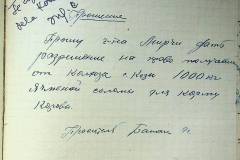 Прошение
Прошу г-на Мирчи дать
разрешение на право получения
от Колхоза с. Кеци 1000 кг
Ячменой соломы для корму
Корова.
Проситель